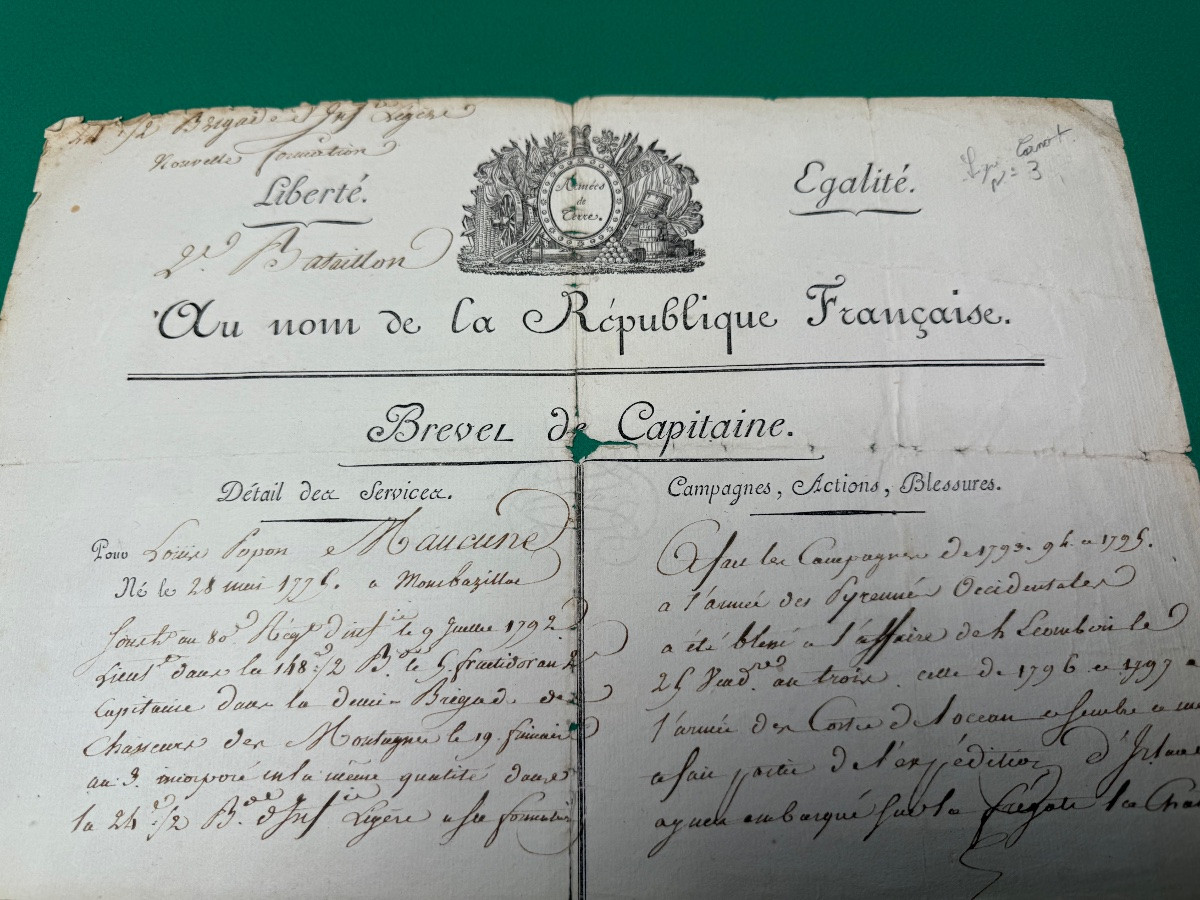 24e 1/2 Brigade d'Infrie Légère
Nouvelle formation
Liberté.
Armées
de
Terre.
Egalité.
No 3
2d. Bataillon
Au nom de la République Française.
Brevet de Capitaine.
Détail des Services.
Pour Loüis Popon e Maucune
Né le 28 mai 1776. a Monbazillac
au 80e Régt d'infie le 9 Juillet 1792.
Lieutt dans la 148e 1/2 Bde le 5 fructidor an 2
Capitaine dans la demie Brigade des
Chasseurs des Montagnes le 19. frimaire
an 3. incorporé en la même qualité dans
la 24e 1/2 Bde d'Infie Légère a sa formation
Campagnes, Actions, Blessures.
A fait les Campagnes de 1793. 94. et 1795.
a l'armée des Pyrennées Occidentales
a été blessé a l'affaire de le
25 Vendre an trois. celle de 1796 et 1797 a
l'armée des Costes de l'ocean
a fait partie de l'expédition d'Irlan
ayant embarqué sur la frégate la